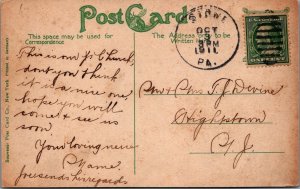 Post Card
This space may be used for
Correspondence
The Address
Written
OCT
PM
1911
PA.
ONE CENT
Souvenir Post Card Co., New York, Printed in Germany
This is our Jr. Church
don't you think
it is a nice one
hope you will
come & see us
soon.
Your loving niece
Mame
Joe sends his regards
Mr & Mrs T. J. Devine
Hightstown
N. J.